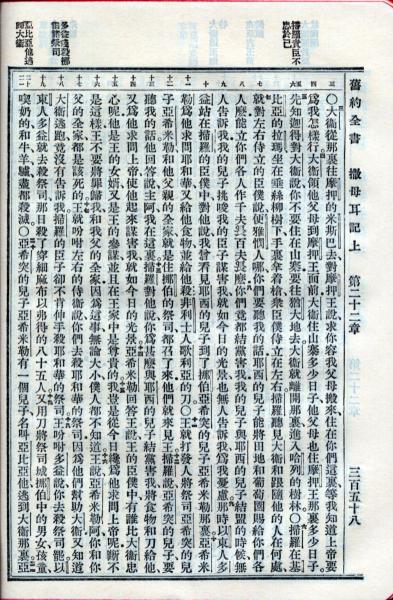 舊約全書 撒母耳記上 第二十二章 三百五十八
掃羅責臣不
忠於己
多益殺挪
伯諸祭司
亞比亞他逃
歸大衛
○大衛從那裏往摩押的米斯巴去對摩押王說求你容我父母搬來住在你們這裏等我知道上帝要
為我怎樣行大衛領他父母到摩押王面前大衛住山寨多少日子他父母也住摩押王那裏多少日子
先知迦得對大衛說你不要住在山寨要往猶大地去大衛就離開那裏進入哈列的樹林○掃羅在基
比亞的拉瑪坐在垂絲柳樹下手裏拿着槍衆臣僕侍立在左右掃羅聽見大衛和跟隨他的人在何處
就對左右侍立的臣僕說便雅憫人哪你們要聽我的話耶西的兒子能將田地和葡萄園賜給你們各
人麼能立你們各人作千夫長百夫長麼你們竟都結黨害我我的兒子與耶西的兒子結盟的時候無
人告訴我我的兒子挑唆我的臣子謀害我就如今日的光景也無人告訴我為我憂慮那時以東人多
益站在掃羅的臣僕中對他說我曾看見耶西的兒子到了挪伯亞希突的兒子亞希米勒那裏亞希米
勒為他求問耶和華又給他食物並給他殺非利士人歌利亞的刀○王就打發人將祭司亞希突的兒
子亞希米勒和他父親的全家就是住挪伯的祭司都召了來他們就來見王掃羅說亞希突的兒子要
聽我的話他回答說主阿我在這裏掃羅對他說你為甚麼與耶西的兒子結黨害我將食物和刀給他
又為他求問上帝使他起來謀害我就如今日的光景亞希米勒回答王說王的臣僕中有誰比大衛忠
心呢他是王的女婿又是王的參謀並且在王家中是尊貴的我豈是從今日纔為他求問上帝呢斷不
是這樣王不要將罪歸我和我父的全家因為這事無論大小僕人都不知道王說亞希米勒阿你和你
父的全家都是該死的王就吩咐左右的侍衛說你們去殺耶和華的祭司因為他們幫助大衛又知道
大衛逃跑竟沒有告訴我掃羅的臣子卻不肯伸手殺耶和華的祭司王吩咐多益說你去殺祭司罷以
東人多益就去殺祭司那日殺了穿細麻布以弗得的八十五人又用刀將祭司城挪伯中的男女孩童
喫奶的和牛羊驢盡都殺滅○亞希突的兒子亞希米勒有一個兒子名叫亞比亞他逃到大衛那裏